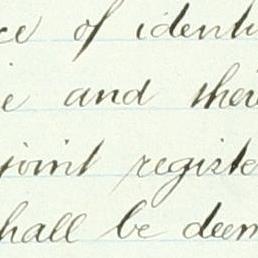 ce of identi
e and there
joint registe
shall be deem